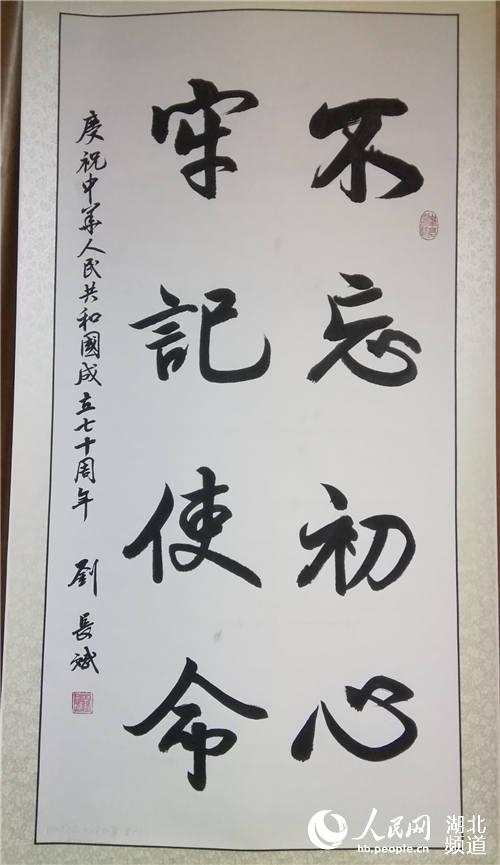 不忘初心
牢記使命
慶祝中華人民共和國成立七十周年 劉長斌
人民网 湖北频道
hb.people.cn